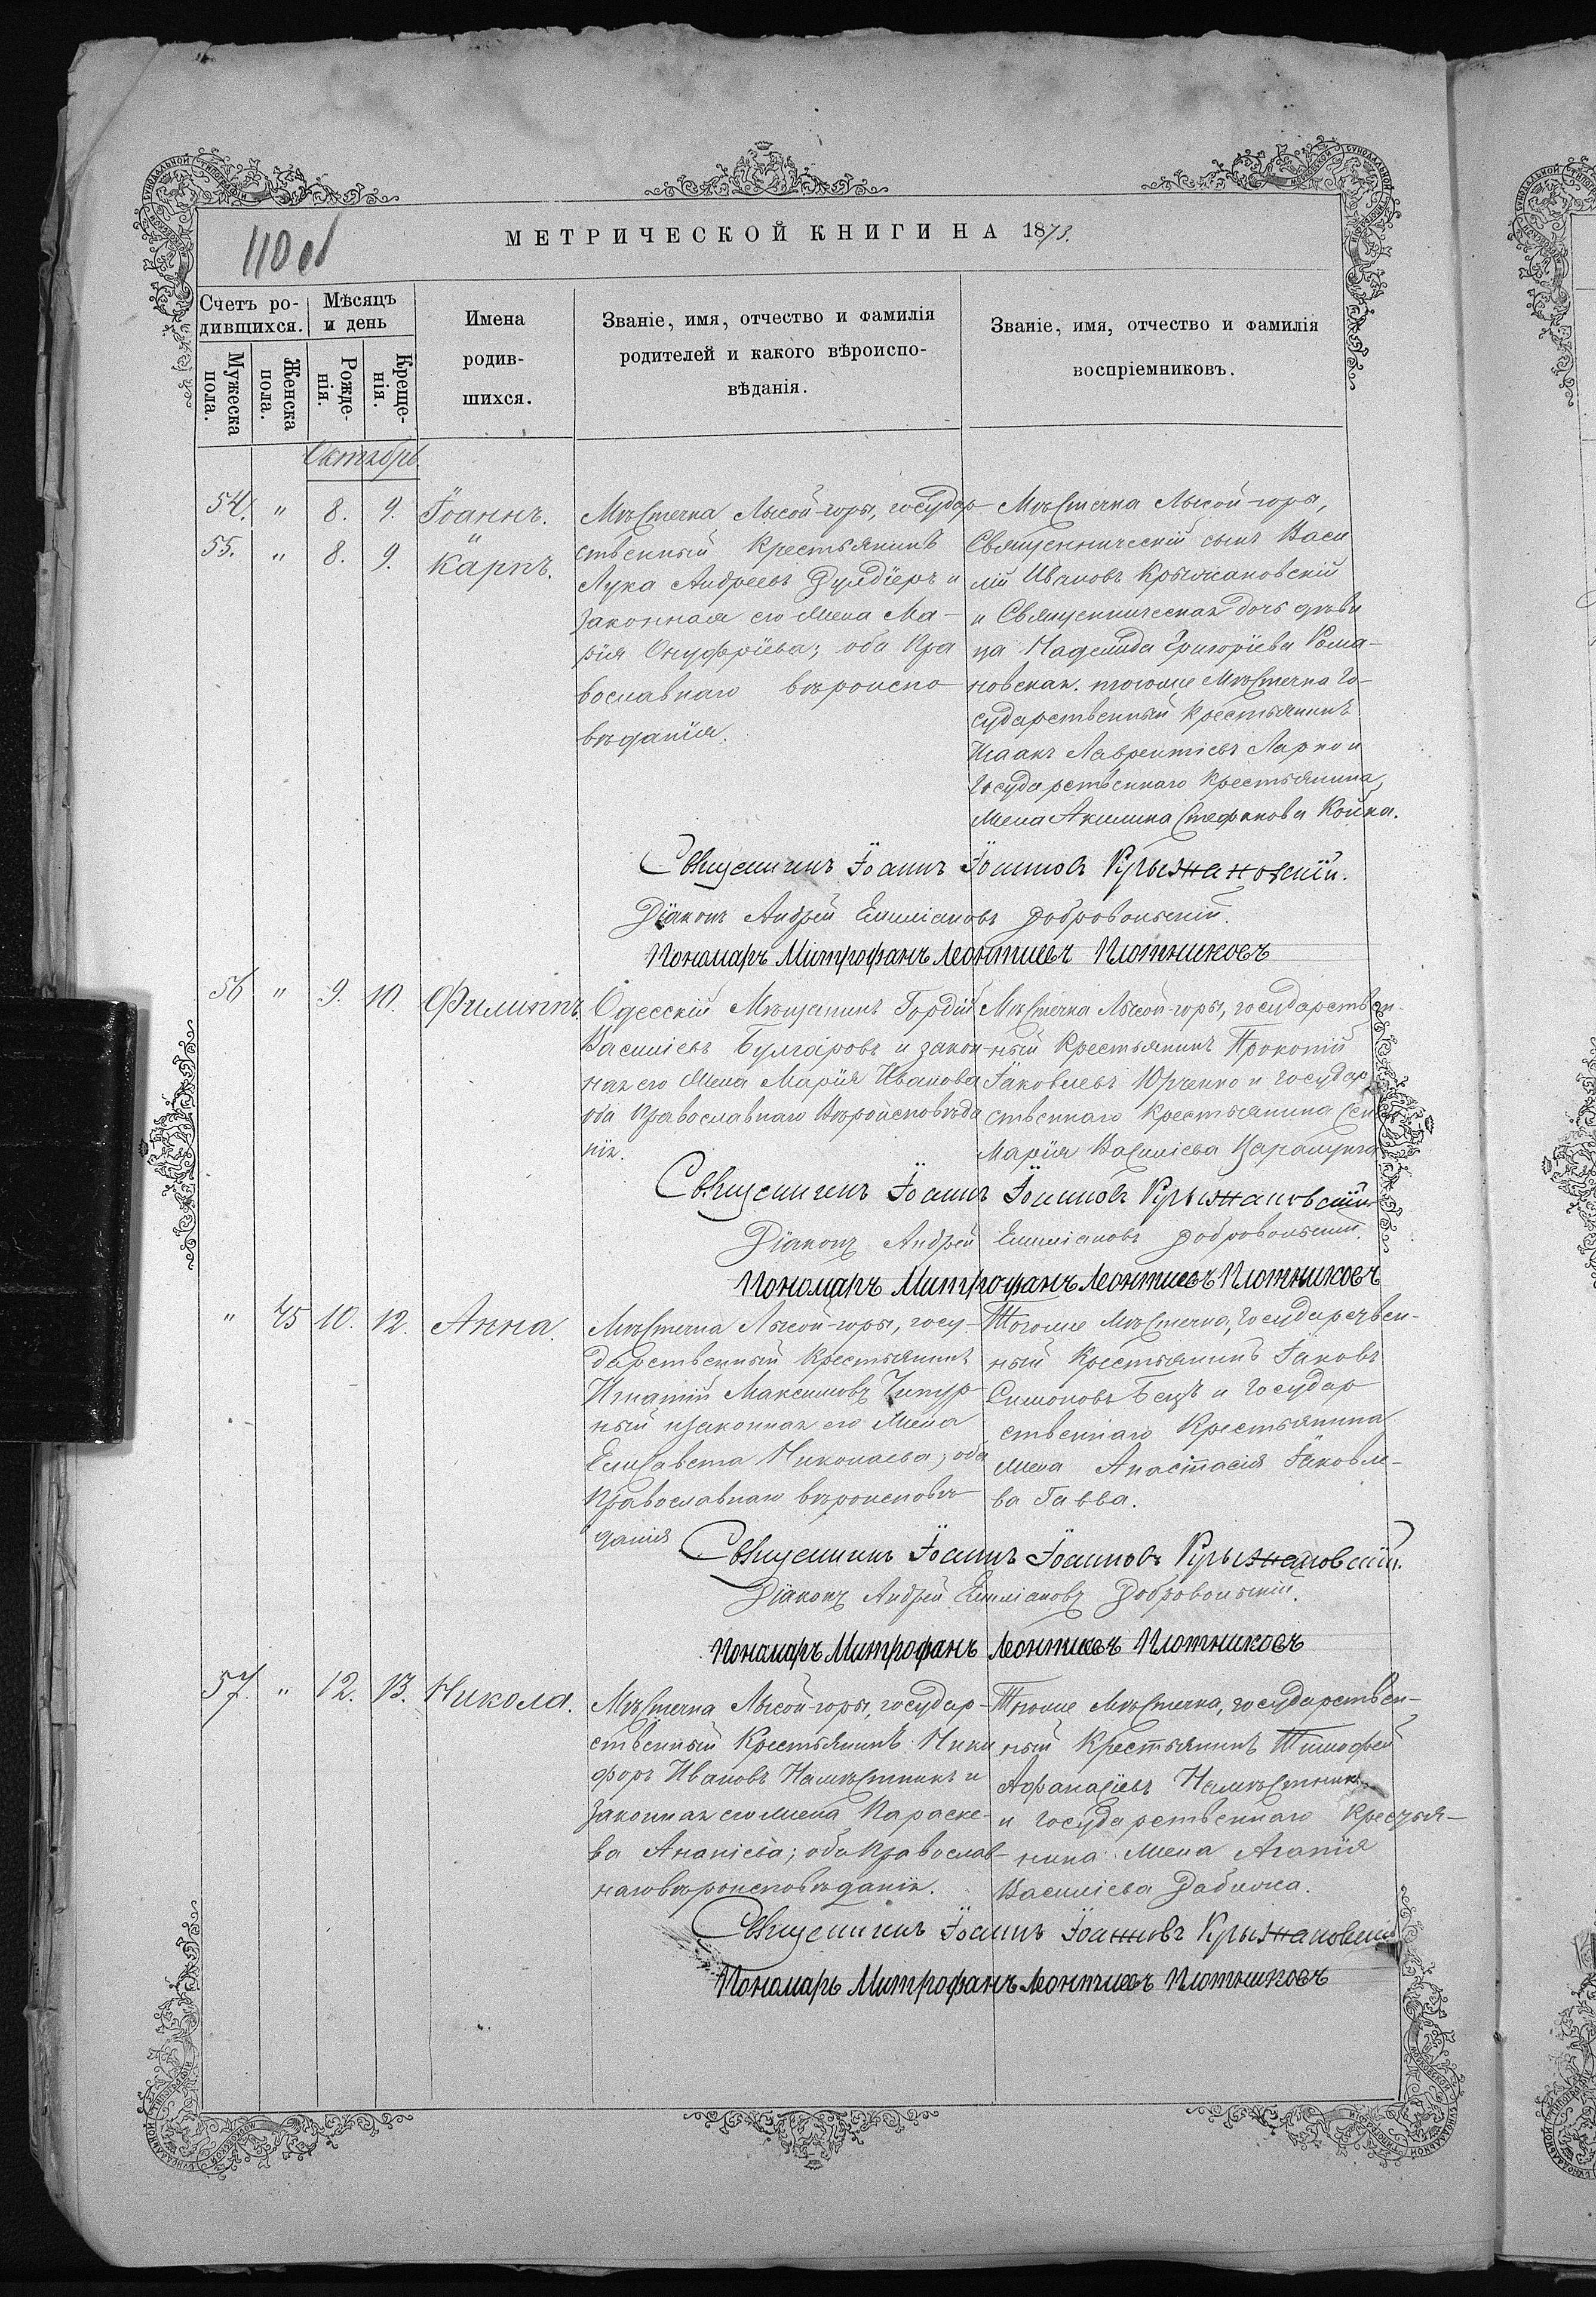 110 об
МЕТРИЧЕСКОЙ КНИГИ НА 1873.
Счетъ ро-
дившихся.
Мѣсяцъ
и день
Мужеска
пола.
Женска
пола.
Рожде-
нія.
Креще-
нія.
Имена
родив-
шихся.
Званіе, имя, отчество и фамилія
родителей и какого вѣроиспо-
вѣданія.
Званіе, имя, отчество и фамилія
воспріемниковъ.
Октябрь.
54. " 8. 9. Іоаннъ.
55. " 8. 9. Карпъ.
Мѣстечка Лысой-горы, государ-
ственный крестьянинъ
Лука Андреевъ и
законная его жена Ма-
рія Онуфріева; оба Пра
вославнаго вѣроиспо
вѣданія.
Мѣстечка Лысой-горы,
Священническій сынъ Васи
лій Ивановъ Крыжановскій
и Священническая дочь дѣви
ца Надежда Григоріева Рома-
новская. тогоже Мѣстечка Го-
сударственный Крестьянинъ
Исаакъ Лаврентіевъ и
Государственнаго Крестьянина,
жена Акилина Стефанова Койка.
Священникъ Іоаннъ Іоанновъ Крыжановскій.
Діаконъ Андрей Емиліановъ Добровольскій.
Пономарь Митрофанъ Леонтиевъ Плотниковъ
56 " 9. 10. Филиппъ.
Одесскій Мѣщанинъ Гордій
Василіевъ Булгаровъ и закон
ная его жена Марія Иванова
оба Православнаго Вѣроисповѣда
нія.
Мѣстечка Лысой-горы, государствен-
ный Крестьянинъ Прокопій
Іаковлевъ Юрченко и государ
ственнаго Крестьянина
Марія Василіева
Священникъ Іоаннъ Іоанновъ Крыжановскій
Діаконъ Андрей Емиліановъ Добровольскій.
Пономарь Митрофанъ Леонтиевъ Плотниковъ
" 45 10. 12. Анна.
Мѣстечка Лысой-горы, госу-
дарственный Крестьянинъ
Игнатій Максимовъ
и законная его жена
Елисавета Николаева; оба
Православнаго вѣроисповѣ
данія
Тогоже Мѣстечка, Государствен-
ный Крестьянинъ Іаковъ
Симоновъ и Государ
ственнаго Крестьянина
жена Анастасія Іаковле-
ва Гавва.
Священникъ Іоаннъ Іоанновъ Крыжановскій.
Діаконъ Андрей Емиліановъ Добровольскій.
Пономарь Митрофанъ Леонтиевъ Плотниковъ
57. " 12. 13. Никола.
Мѣстечка Лысой-горы, государ-
ственный Крестьянинъ Ники
форъ Ивановъ Намѣстникъ и
законная его жена Параске-
ва Ананіева; оба Православ-
наго вѣроисповѣданія.
Тогоже Мѣстечка, государствен-
ный Крестьянинъ Тимофей
Афанасіевъ Намѣстникъ
и Государственнаго Крестья-
нина жена Агапія
Василіева
Священникъ Іоаннъ Іоанновъ Крыжановскій
Пономарь Митрофанъ Леонтиевъ Плотниковъ